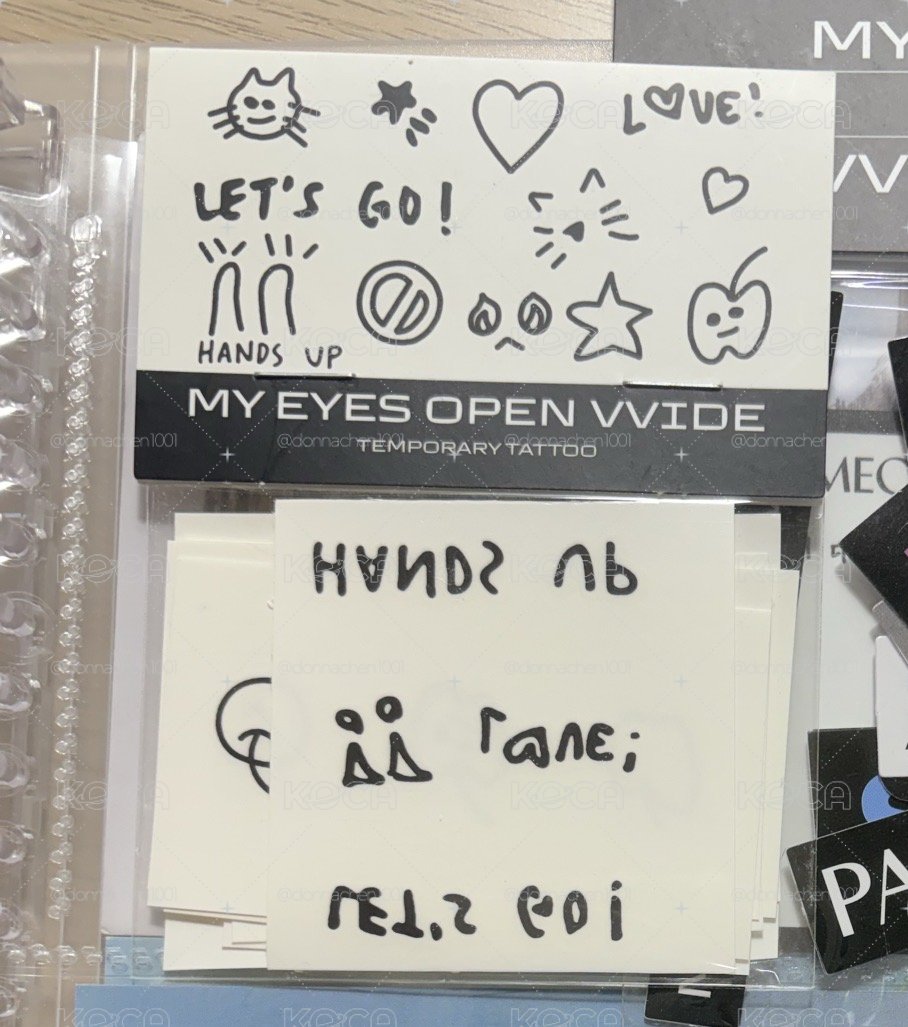 MY
LOVE!
LET'S GO!
VV
HANDS UP
MY EYES OPEN VVIDE
TEMPORARY TATTOO
HANDS UP
LOVE!
PA
LET'S GO!
KECA
@donnachen1001